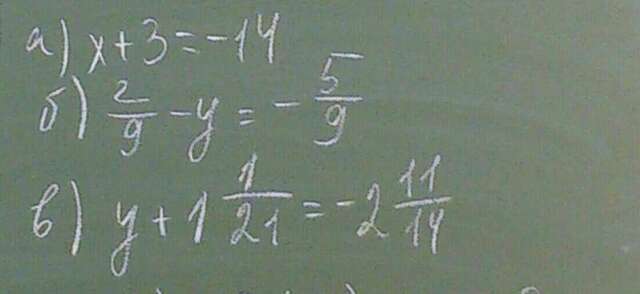 а) x + 3 = -14
б) 2/9 - y = - 5/9
в) y + 1 1/21 = -2 11/14